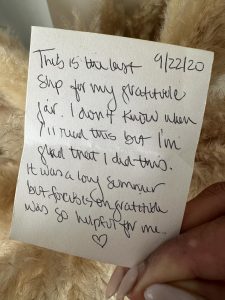 This is the last 9/22/20
slip for my gratitude
jar. I don't know when
I'll read this but I'm
glad that I did this.
It was a long summer
but focusing on gratitude
was so helpful for me.